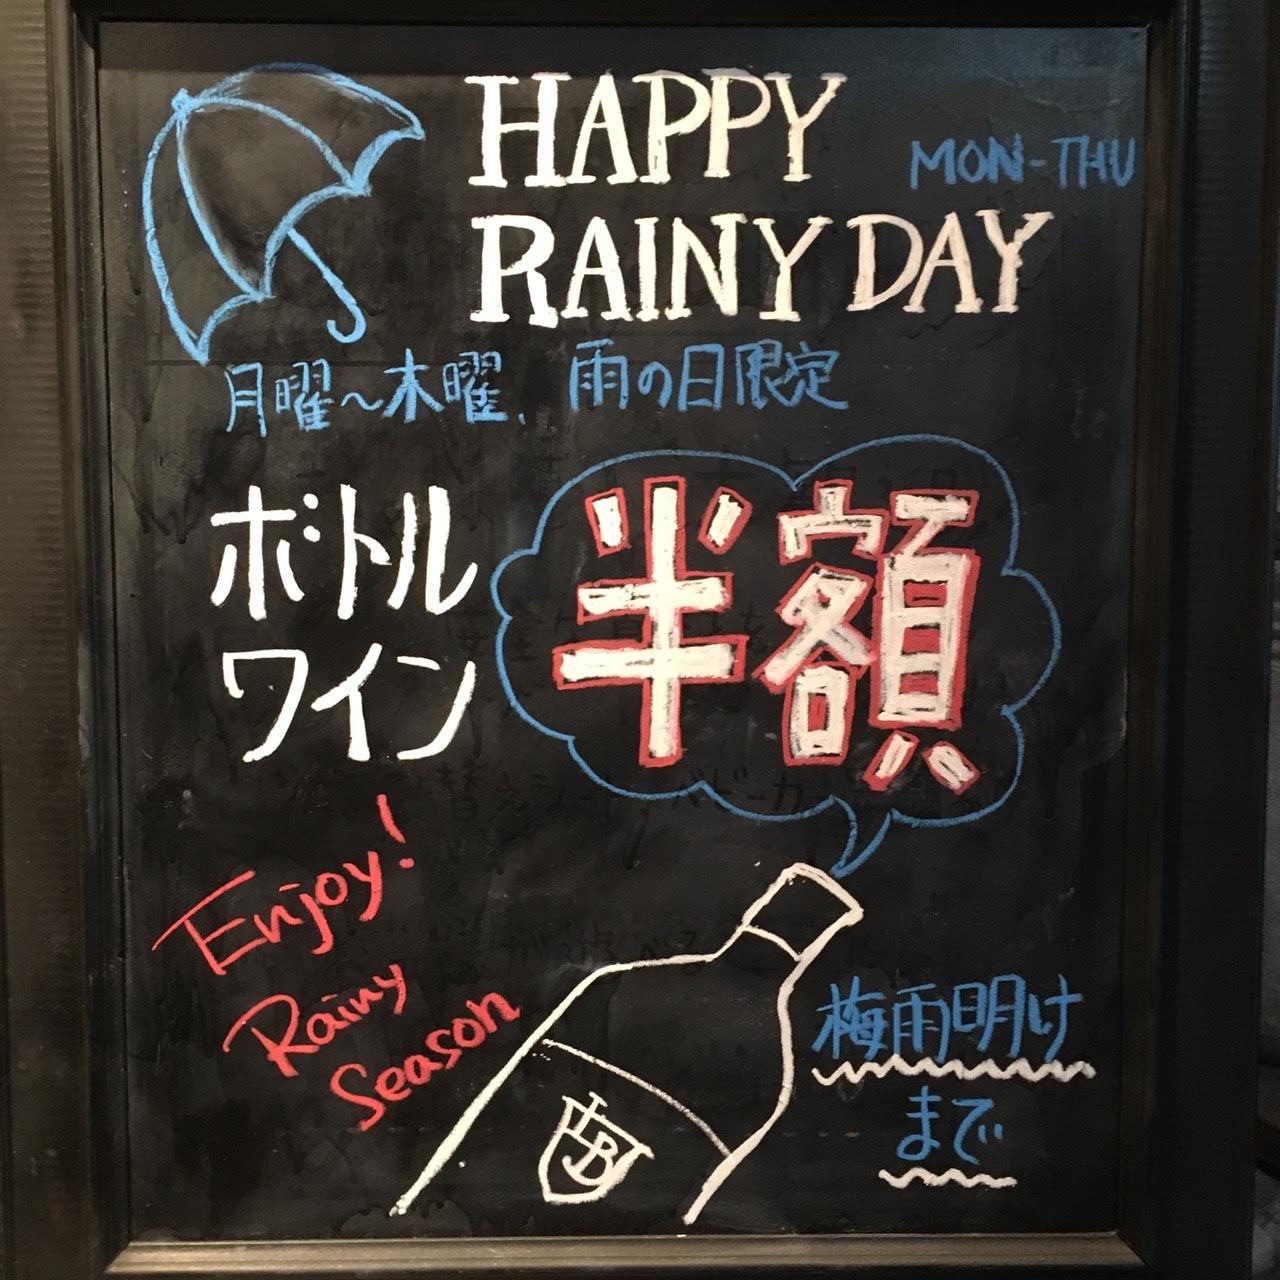 HAPPY
MON-THU
RAINY DAY
月曜〜木曜、雨の日限定
ボトル
ワイン
半額
Enjoy!
Rainy
Season
梅雨明け
まで